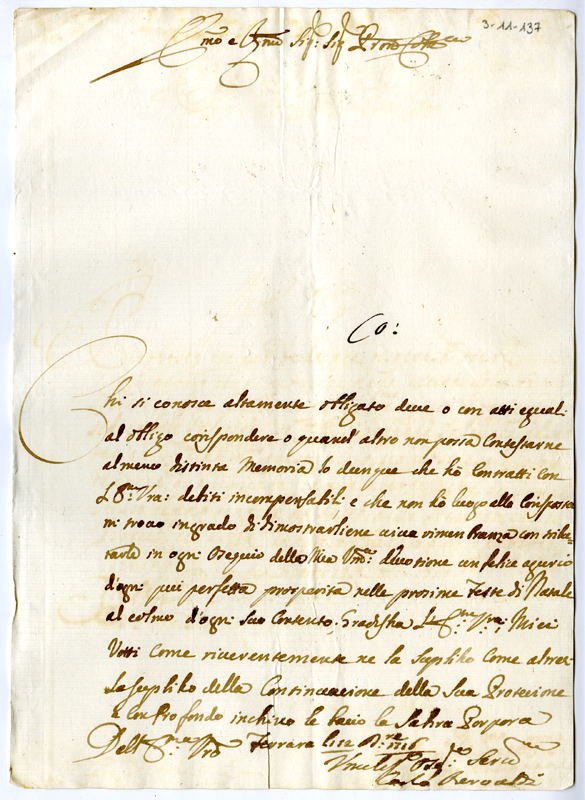 3-11-137
Emo e Rmo Sig: Sig Pron Colmo
Co:
Chi si conosce altamente obligato deve o con atti equal
al obligo corispondere o quand altro non possa Contestarne
almeno distinta Memoria Io dunque che hò Contratti con
l'Emza Vra: debiti incompensabili, e che non hò luogo alla Corisposta
mi trovo in grado di dimostrargliene viva rimenbranza con tribu
tarle in ogni Osequio della Mia Umma divotione un felice agurio
d'ogni piu perfetta prosperità nelle prosime feste di Natale
al colmo d'ogni Suo Contento; Gradisha L'Emza Vra, Miei
Votti Come riverentemente ne la Supliko Come altresi
La supliko della Continuacione della Sua Protecione
e con Profondo inchino le bacio la Sakra Porpora
Dell Emza Vra Ferrara li 12 Xbre 1716
Umilis Serre
Carlo